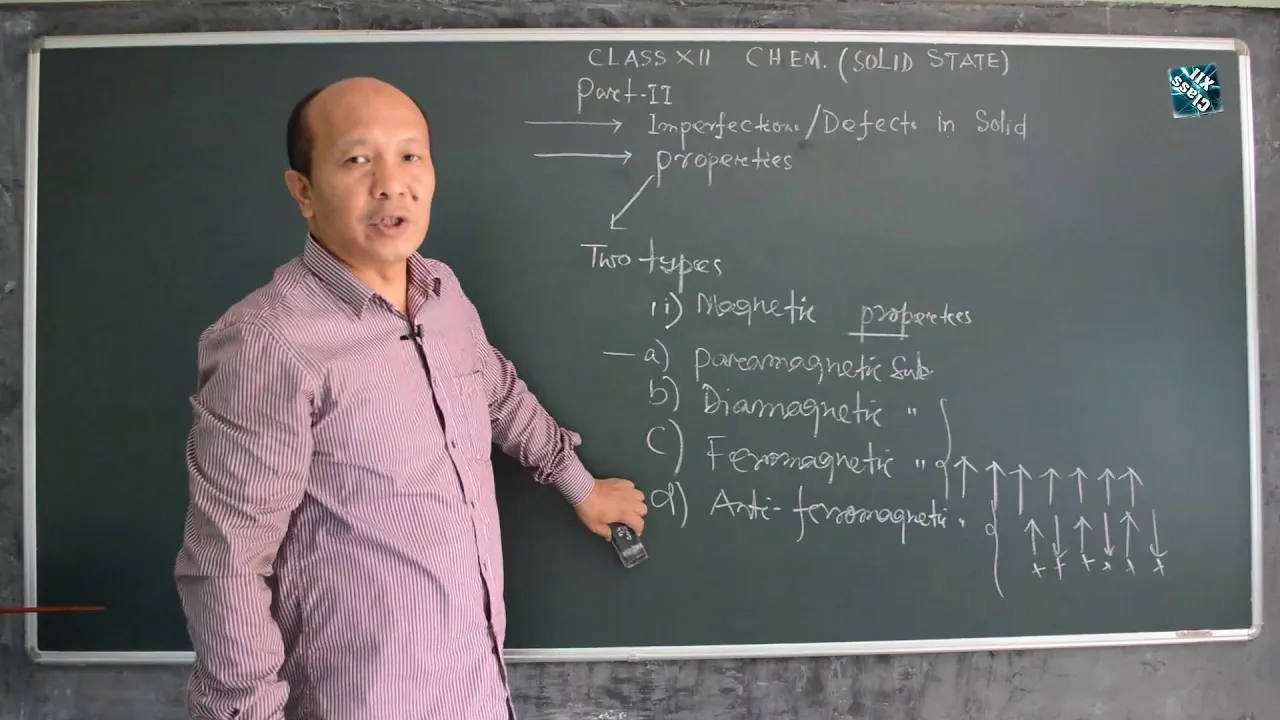 CLASS XII CHEM. (SOLID STATE)
Part-II
Imperfections/Defects in Solid
properties
Two types
ii) Magnetic properties
a) Paramagnetic Sub
b) Diamagnetic "
c) Ferromagnetic "
d) Anti-ferromagnetic "
Class
XII